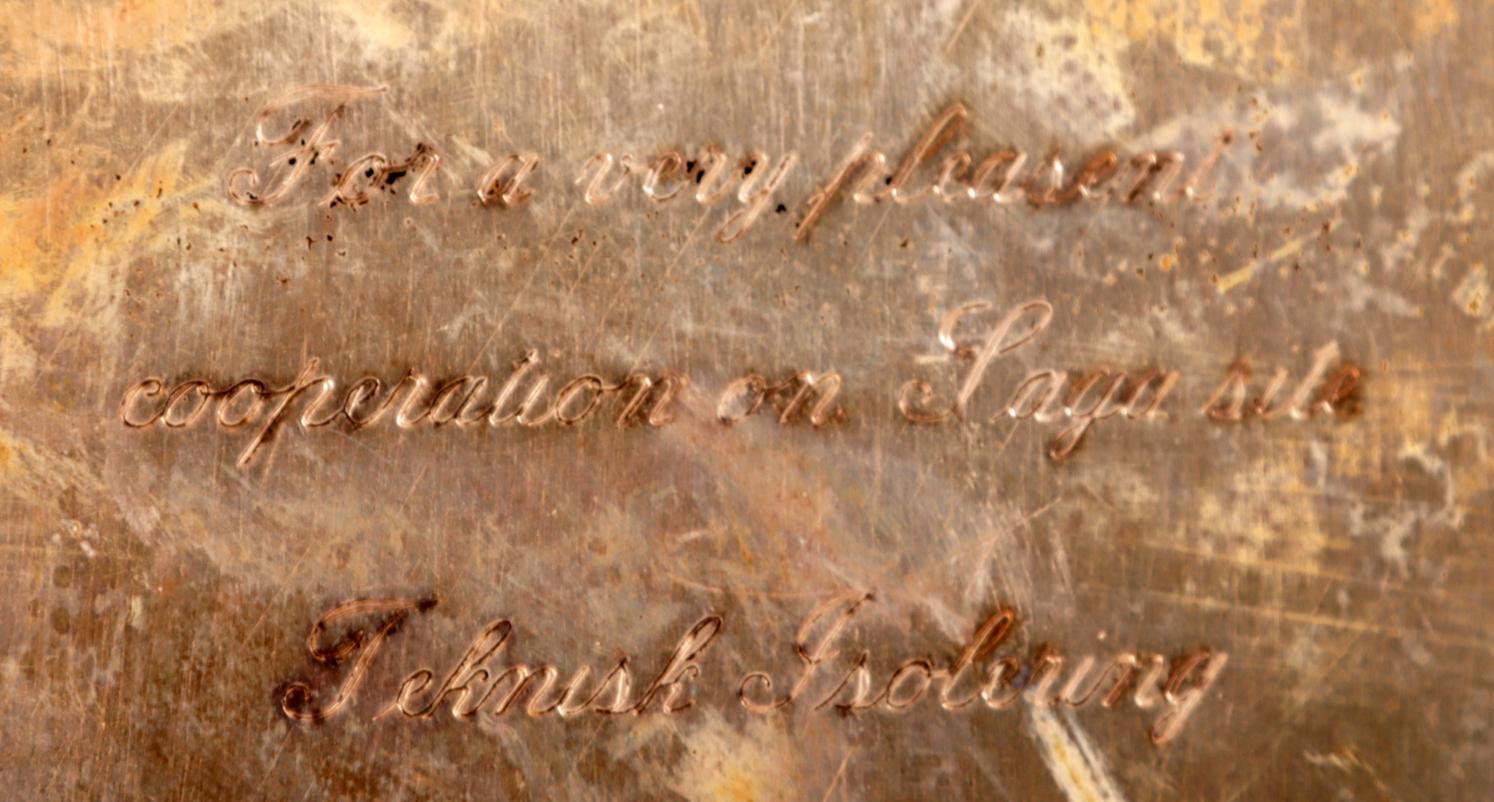 For a very pleasent
cooperation on Saga site
Teknisk Isolering